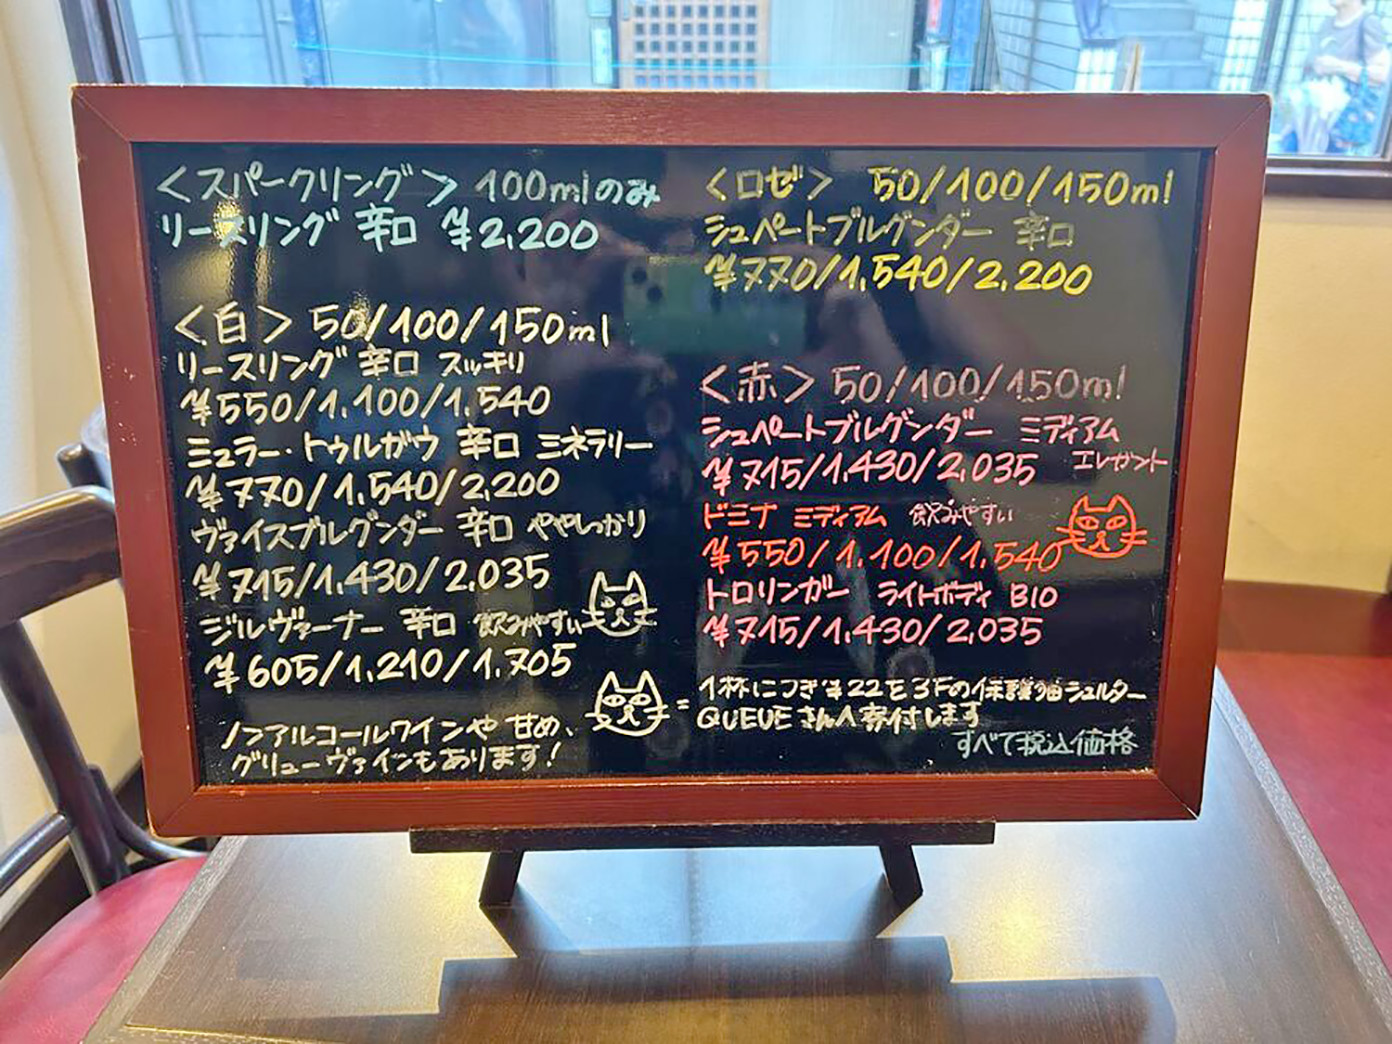 <スパークリング> 100mlのみ
リースリング 辛口 ¥2,200
<白> 50/100/150ml
リースリング 辛口 スッキリ
¥550/1,100/1,540
ミュラー・トゥルガウ 辛口 ミネラリー
¥770/1,540/2,200
ヴァイスブルグンダー 辛口 ややしっかり
¥715/1,430/2,035
ジルヴァーナー 辛口 飲みやすい
¥605/1,210/1,705
ノンアルコールワインや甘め、
グリューヴァインもあります!
<ロゼ> 50/100/150ml
シュペートブルグンダー 辛口
¥770/1,540/2,200
<赤> 50/100/150ml
シュペートブルグンダー ミディアム
エレガント
¥715/1,430/2,035
ドミナ ミディアム 飲みやすい
¥550/1,100/1,540
トロリンガー ライトボディ BIO
¥715/1,430/2,035
= 1杯につき¥22を3Fの保護猫シェルター
QUEUEさんへ寄付します
すべて税込価格